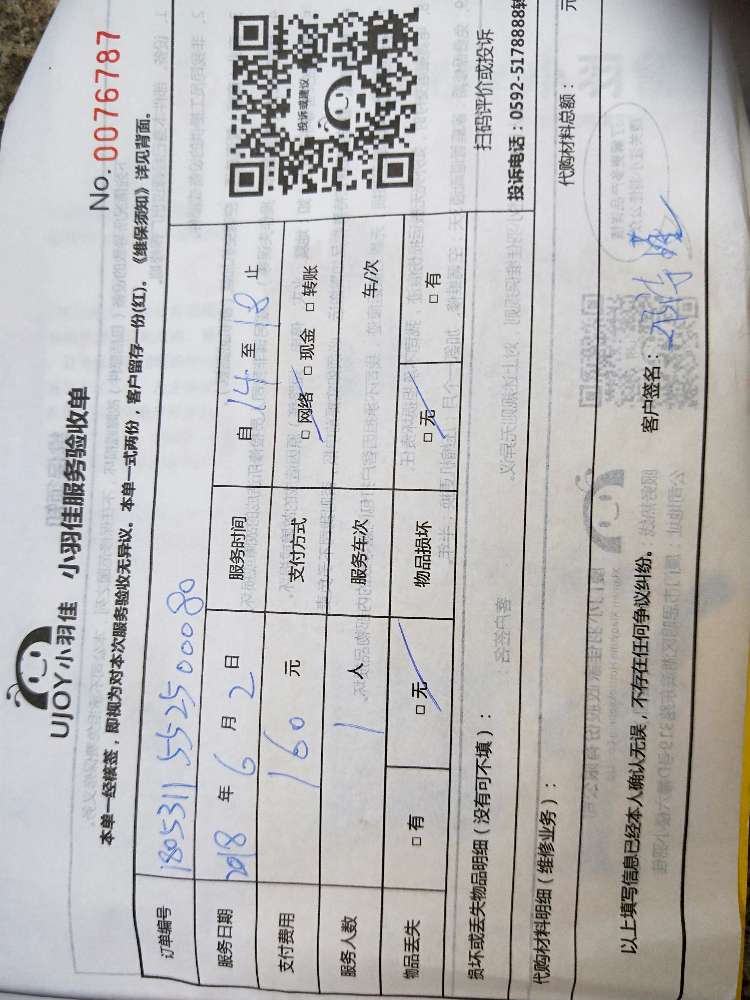 UJOY小羽佳 小羽佳服务验收单
No. 0076787
本单一经核签，即视为对本次服务验收无异议。本单一式两份，客户留存一份(红)。《维保须知》详见背面。
订单编号 1805311552500080
服务日期 2018 年 6 月 2 日 服务时间 自 14 至 18 止
支付费用 160 元 支付方式 □ 网络 □ 现金 □ 转账
服务人数 1 人 服务车次 车/次
物品丢失 □ 有 □ 无 物品损坏 □ 无 □ 有
投诉或建议
扫码评价或投诉
投诉电话：0592-5178888转
损坏或丢失物品明细（没有可不填）：
代购材料明细（维修业务）： 代购材料总额： 元
以上填写信息已经本人确认无误，不存在任何争议纠纷。 客户签名：